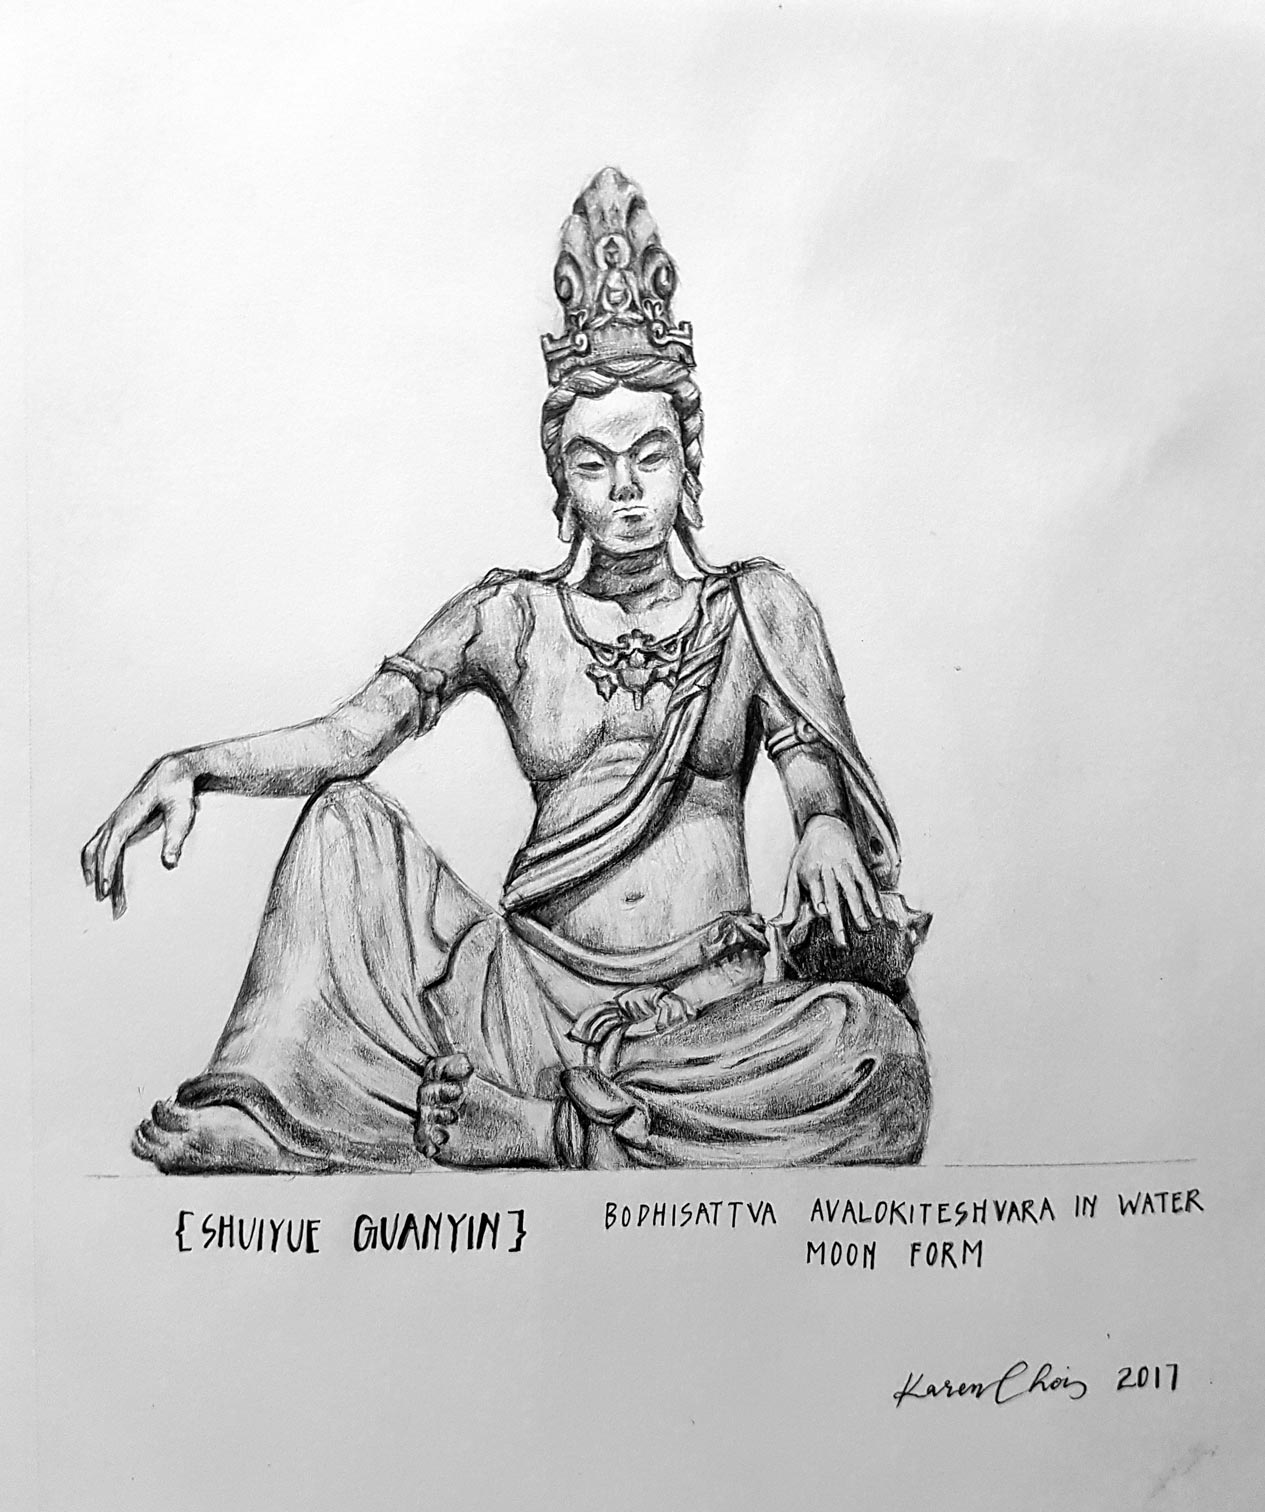 {SHUIYUE GUANYIN}
BODHISATTVA AVALOKITESHVARA IN WATER
MOON FORM
Karen Choi 2017